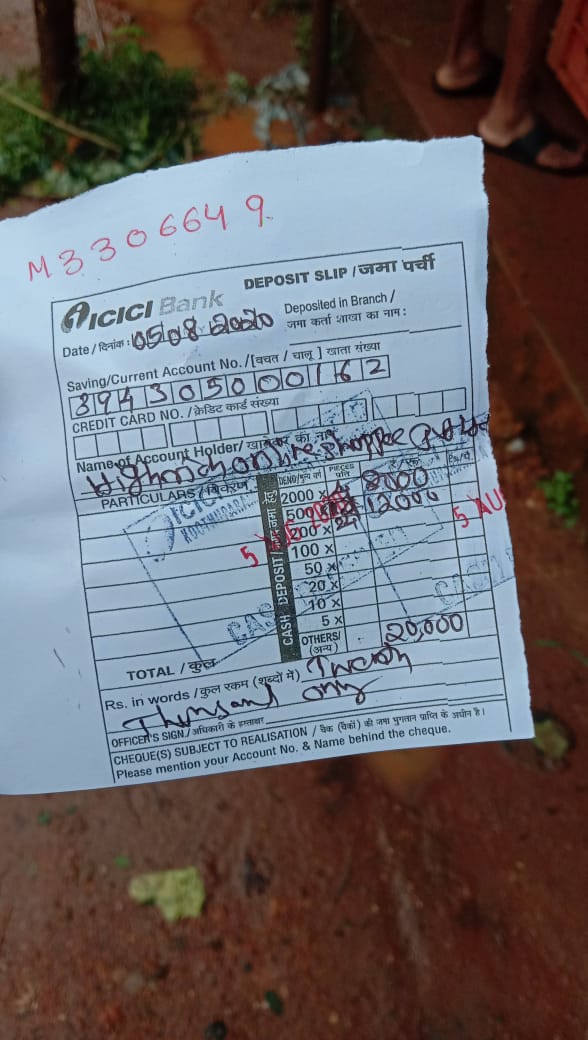 M3306649
DEPOSIT SLIP / जमा पर्ची
ICICI Bank
Date / दिनांक : 05/08/2020
Deposited in Branch /
जमा कर्ता शाखा का नाम :
Saving/Current Account No. / [बचत / चालू ] खाता संख्या
894305000162
CREDIT CARD NO. / क्रेडिट कार्ड संख्या
Name of Account Holder/
Highrich online shoppee
PARTICULARS / विवरण
CASH DEPOSIT/ जमा हेतु
PIECES
2000 x 4 8000
500 x 24 12000
200 x
100 x
50 x
20 x
10 x
5 x
OTHERS/
(अन्य)
5 AUG
5 AU
CASH
TOTAL / कुल 20,000
Rs. in words / कुल रकम (शब्दों में) Twenty
Thousand only
OFFICER'S SIGN./ अधिकारी के हस्ताक्षर
CHEQUE(S) SUBJECT TO REALISATION / चैक (चैकों) की जमा भुगतान प्राप्ति के अधीन है।
Please mention your Account No. & Name behind the cheque.